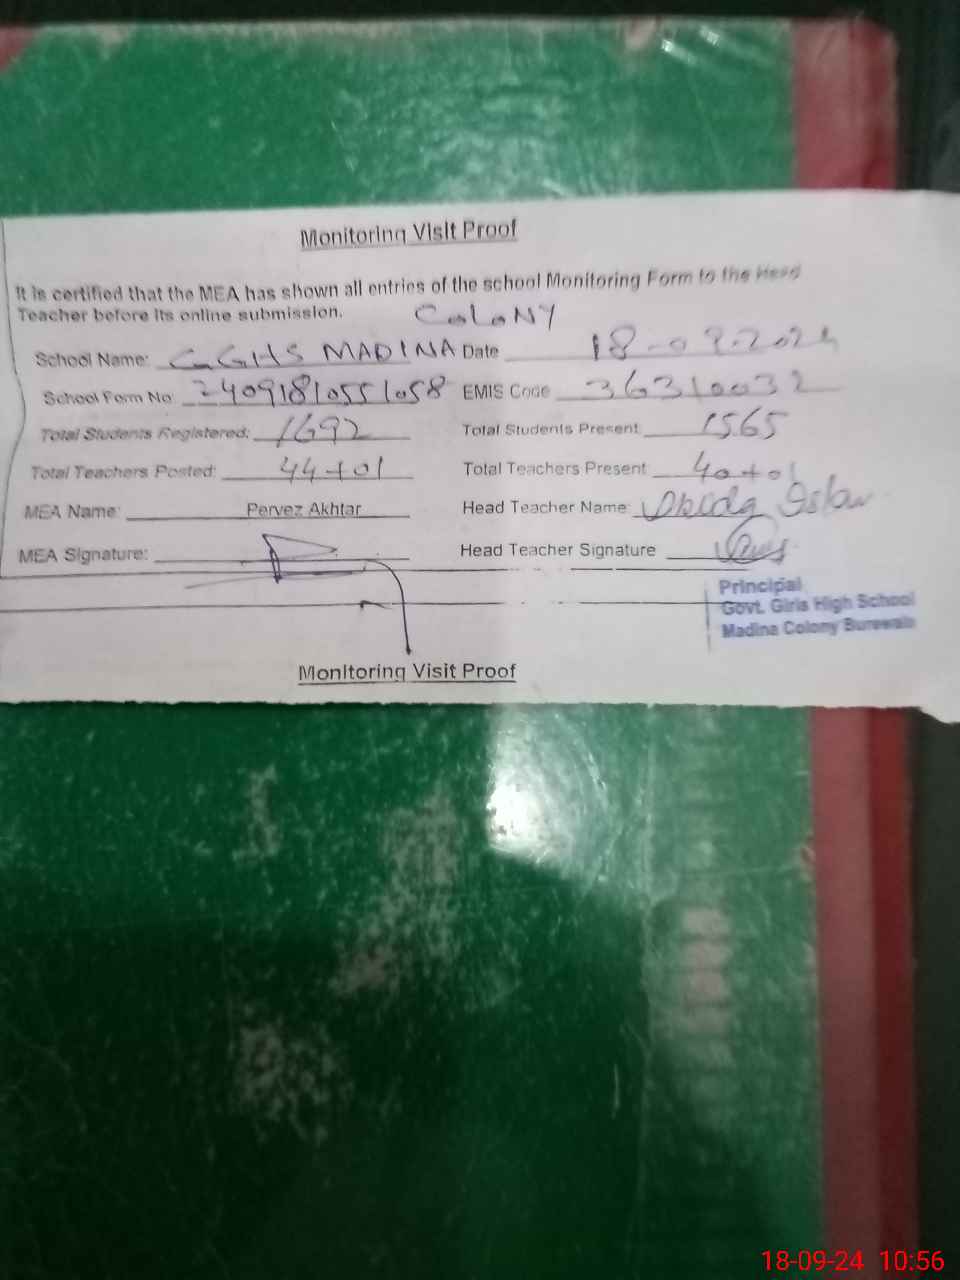 Monitoring Visit Proof
It is certified that the MEA has shown all entries of the school Monitoring Form to the Head
Teacher before its online submission.
COLONY
School Name: GGHS MADINA Date 18-09-2024
School Form No 24091810551058 EMIS Code 36310032
Total Students Registered: 1692 Total Students Present 1565
Total Teachers Posted: 44+01 Total Teachers Present 40+01
MEA Name: Pervez Akhtar Head Teacher Name:
MEA Signature: Head Teacher Signature
Principal
Govt. Girls High School
Madina Colony Burewala
Monitoring Visit Proof
18-09-24 10:56